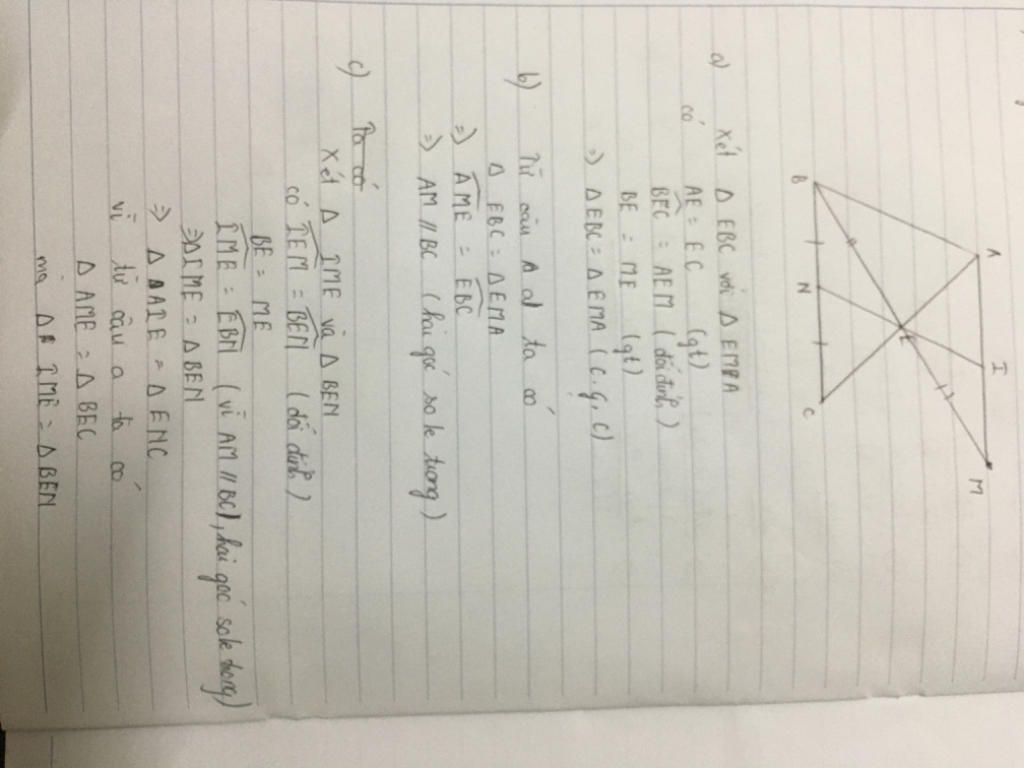 A
I
M
E
B
N
C
a) Xét Δ EBC với Δ EMA
có AE = EC (gt)
BEC = AEM (đối đỉnh)
BE = ME (gt)
=) Δ EBC = Δ EMA (c.g.c)
b) Từ câu a ta có
Δ EBC = Δ EMA
=) AME = EBC
=) AM // BC (hai góc so le trong)
c) Ta có
Xét Δ IME và Δ BEN
có IEM = BEN (đối đỉnh)
BE = ME
IME = EBN (vì AM // BC), hai góc so le trong)
=) Δ IME = Δ BEN
=) Δ AIE = Δ ENC
vì từ câu a ta có
Δ AME = Δ BEC
mà Δ IME = Δ BEN